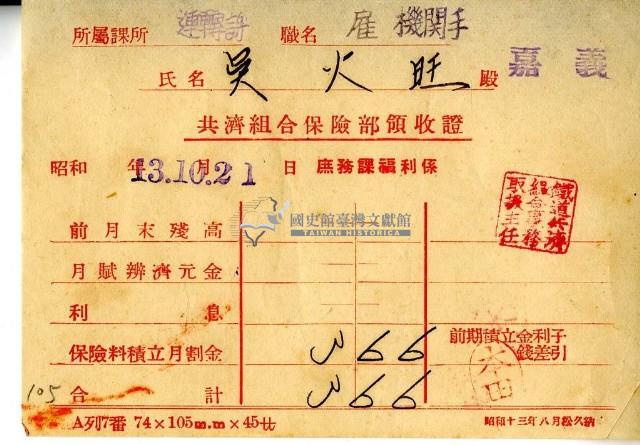 所屬課所 運轉 職名 雇 機関手
氏名 吳火旺 殿 嘉義
共濟組合保險部領收證
昭和 年 月 日 庶務課福利係
13.10.21
鐵道共濟
組合事務
取扱主任
國史館臺灣文獻館
TAIWAN HISTORICA
前月末殘高
月賦辨濟元金
利息
保險料積立月割金 3 66 前期積立金利子
錢差引
本田
105 合計 3 66
A列7番 74×105m.m×45廿 昭和十三年八月松久納